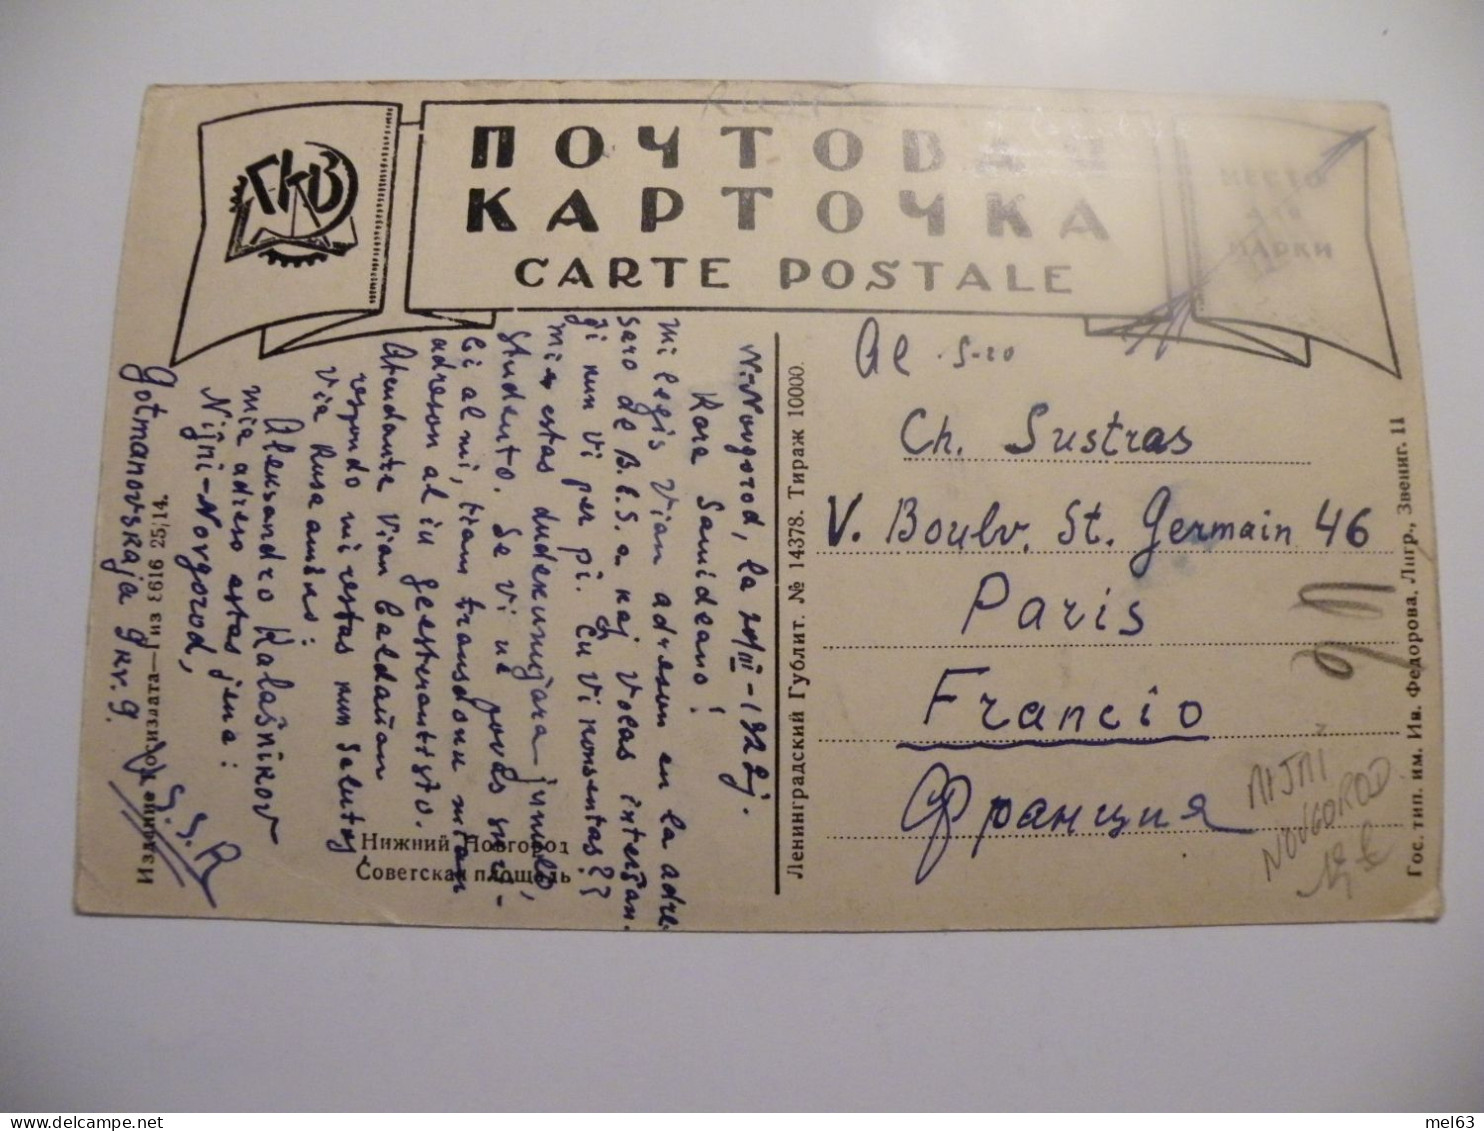 ПОЧТОВАЯ
КАРТОЧКА
CARTE POSTALE
МЕСТО
ДЛЯ
МАРКИ
ГКВ
N.-Novgorod, la 20/III-1922j.
Kara Samideano!
Mi legis Vian adreson en la adre-
saro de B.E.S.-a kaj volas interŝan-
ĝi kun vi per pi. Ĉu vi konsentas??
Mi estas dudekunujara junulo,
studento. Se vi ne povas skri-
bi al mi, tiam transdonu mian
adreson al iu geesperantisto.
Atendante Vian baldaŭan
respondo mi restas kun salutoj
Via Rusa amiko:
Aleksandro Kalaŝnikov
Mia adreso estas jena:
Niĵni-Novgorod,
Gotmanovskaja 9 kv. 9.
U.S.S.R
Нижний Новгород
Советская площадь
Издание Госиздата—1 из 8616 25/14.
Ленинградский Гублит. № 14378. Тираж 10000.
Al S-ro
Ch. Sustras
V. Boulv. St. Germain 46
Paris
Francio
Франция
NIJNI
NOVGOROD
Гос. тип. им. Ив. Федорова, Лнгр., Звениг. 11
mel63